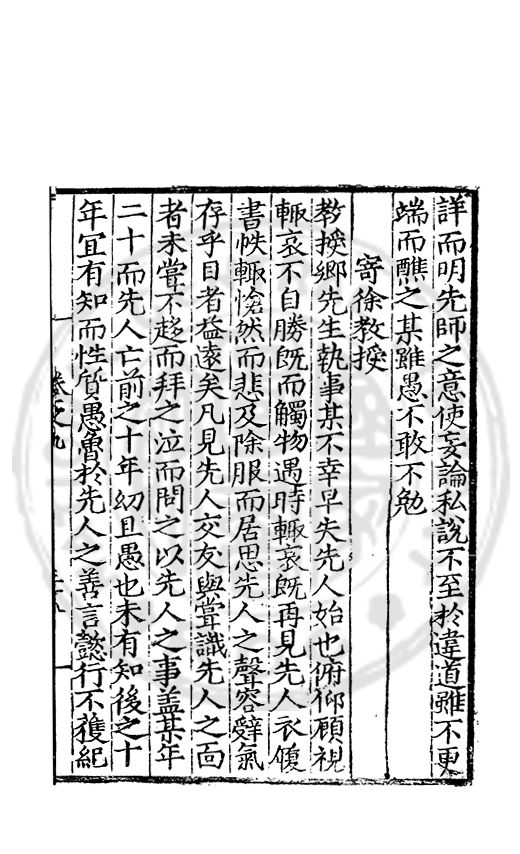 詳而明先師之意使妄論私說不至於違道雖不更
端而醮之某雖愚不敢不勉
寄徐教授
教授鄉先生執事某不幸早失先人始也俯仰顧視
輙哀不自勝既而觸物遇時輙哀既再見先人衣復
書帙輙愴然而悲及除服而居思先人之聲容辭氣
存乎目者益遠矣凡見先人交友與嘗識先人之面
者未嘗不趍而拜之泣而問之以先人之事盖某年
二十而先人亡前之十年幼且愚也未有知後之十
年宜有知而性質愚魯於先人之善言懿行不獲紀
卷之九